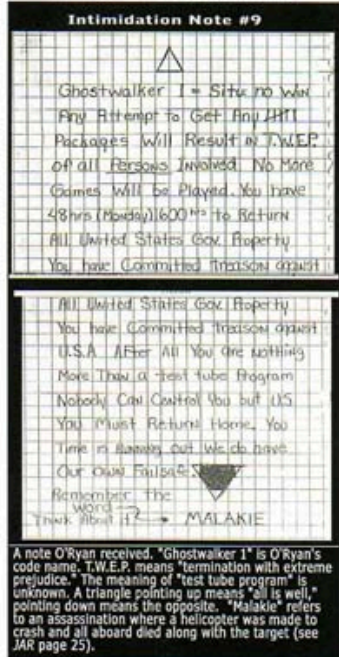 Intimidation Note #9
Ghostwalker 1 = Situ no Win
Any Attempt to Get Any
Packages Will Result in T.W.E.P.
of all Persons Involved. No More
Games Will be Played. You have
48hrs (Monday) 1600 hrs to Return
All United States Gov. Property
You have Committed treason against
All United States Gov. Property
You have Committed treason against
U.S.A. After All You are Nothing
More Than a test tube Program
Nobody Can Control You but US
You Must Return Home. You
Time is Running out We do have
Our Own Failsafe.
Remember the
word
Think About it MALAKIE
A note O'Ryan received. "Ghostwalker 1" is O'Ryan's
code name. T.W.E.P. means "termination with extreme
prejudice." The meaning of "test tube program" is
unknown. A triangle pointing up means "all is well,"
pointing down means the opposite. "Malakie" refers
to an assassination where a helicopter was made to
crash and all aboard died along with the target (see
JAR page 25).